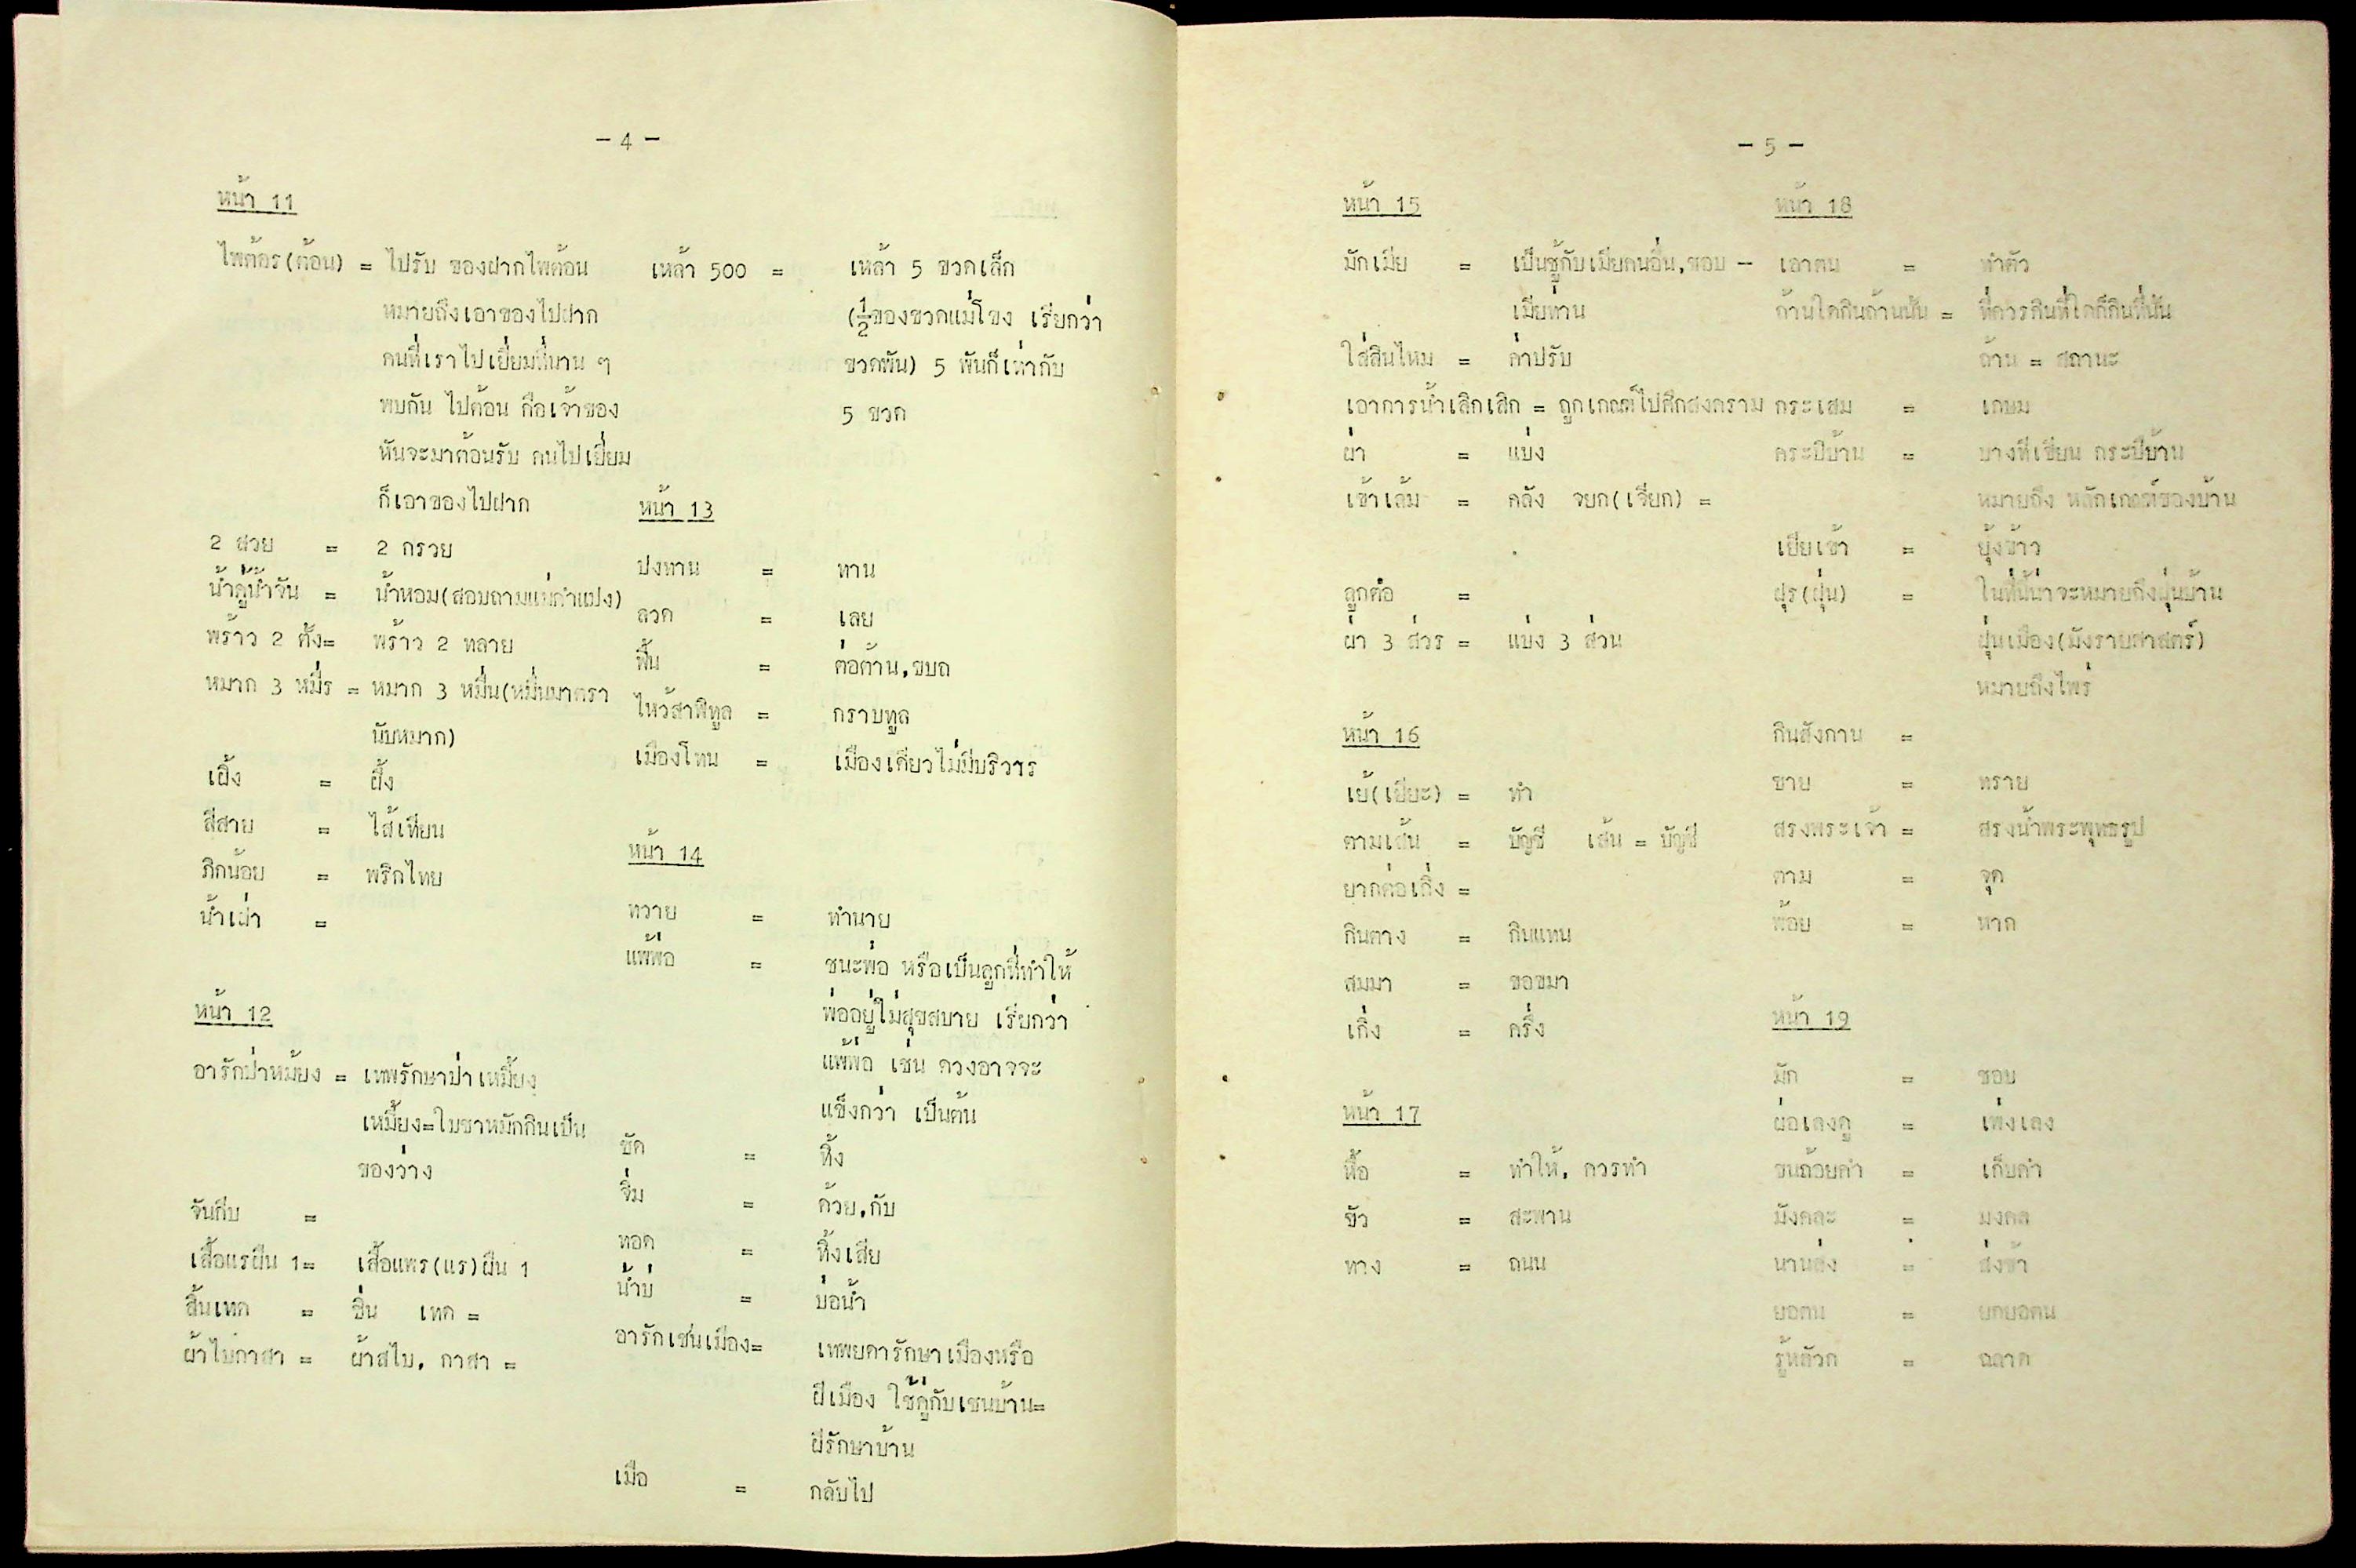 - 4 -
หน้า 11
ไพต้อร(ต้อน) = ไปรับ ของฝากไพต้อน
หมายถึงเอาของไปฝาก
คนที่เราไปเยี่ยมที่นาน ๆ
พบกัน ไปต้อน คือเจ้าของ
หันจะมาต้อนรับ คนไปเยี่ยม
ก็เอาของไปฝาก
2 สวย = 2 กรวย
น้ำคู้น้ำจัน = น้ำหอม(สอบถามแม่กำแปง)
พร้าว 2 ตั้ง= พร้าว 2 ทลาย
หมาก 3 หมื่ร = หมาก 3 หมื่น(หมื่นมาตรา
นับหมาก)
เผิ้ง = ผึ้ง
สีสาย = ไส้เทียน
ภิกน้อย = พริกไทย
น้ำเผ่า =
หน้า 12
อารักป่าหม้ยง = เทพรักษาป่าเหมี้ยง
เหมี้ยง=ใบชาหมักกินเป็น
ของว่าง
จันกีบ =
เสื้อแรผืน 1= เสื้อแพร(แร)ผืน 1
สิ้นเทค = ซิ่น เทค =
ผ้าไบกาสา = ผ้าสไบ, กาสา =
เหล้า 500 = เหล้า 5 ขวดเล็ก
(½ของขวดแม่โขง เรียกว่า
ขวดพัน) 5 พันก็เท่ากับ
5 ขวด
หน้า 13
ปงทาน = ทาน
ลวด = เลย
ฟื้น = ต่อต้าน,ขบถ
ไหว้สาพิทูล = กราบทูล
เมืองโทน = เมืองเดียวไม่มีบริวาร
หน้า 14
ทวาย = ทำนาย
แพ้พ่อ = ชนะพ่อ หรือเป็นลูกที่ทำให้
พ่ออยู่ไม่สุขสบาย เรียกว่า
แพ้พ่อ เช่น ดวงอาจจะ
แข็งกว่า เป็นต้น
ซัด = ทิ้ง
จิ่ม = ด้วย,กับ
ทอด = ทิ้งเสีย
น้ำบ่ = บ่อน้ำ
อารักเชนเมือง= เทพยดารักษาเมืองหรือ
ผีเมือง ใช้คู่กับเชนบ้าน=
ผีรักษาบ้าน
เมือ = กลับไป
- 5 -
หน้า 15
มักเมีย = เป็นชู้กับเมียคนอื่น,ชอบ -
เมียท่าน
ใส่สินไหม = ค่าปรับ
เอาการน้ำเลิกเสิก = ถูกเกณฑ์ไปศึกสงคราม
ผ่า = แบ่ง
เข้าเล้ม = คลัง จยก(เจียก) =
ลูกค่อ =
ผ่า 3 ส่วร = แบ่ง 3 ส่วน
หน้า 16
เย้(เยียะ) = ทำ
ตามเส้น = บัญชี เส้น = บัญชี
ยากต่อเกิ่ง =
กินตาง = กินแทน
สมมา = ขอขมา
เกิ่ง = ครึ่ง
หน้า 17
หื้อ = ทำให้, ควรทำ
ขัว = สะพาน
ทาง = ถนน
หน้า 18
เอาตน = ทำตัว
ถ้านใดกินถ้านนั้น = ที่ควรกินที่ใดก็กินที่นั้น
ถ้าน = สถานะ
กระเสม = เกษม
คระปีบ้าน = บางทีเขียน กระปีบ้าน
หมายถึง หลักเกณฑ์ของบ้าน
เยียเข้า = ยุ้งข้าว
ฝุร(ฝุ่น) = ในที่นี้น่าจะหมายถึงฝุ่นบ้าน
ฝุ่นเมือง(มังรายศาสตร์)
หมายถึงไพร่
กินสังกาน =
ซาย = ทราย
สรงพระเจ้า = สรงน้ำพระพุทธรูป
ตาม = จุด
พ้อย = หาก
หน้า 19
มัก = ชอบ
ผ่อเลงดู = เพ่งเลง
ขนถ้อยคำ = เก็บคำ
มังคละ = มงคล
นานส่ง = ส่งช้า
ยอตน = ยกยอตน
รู้หลัวก = ฉลาด